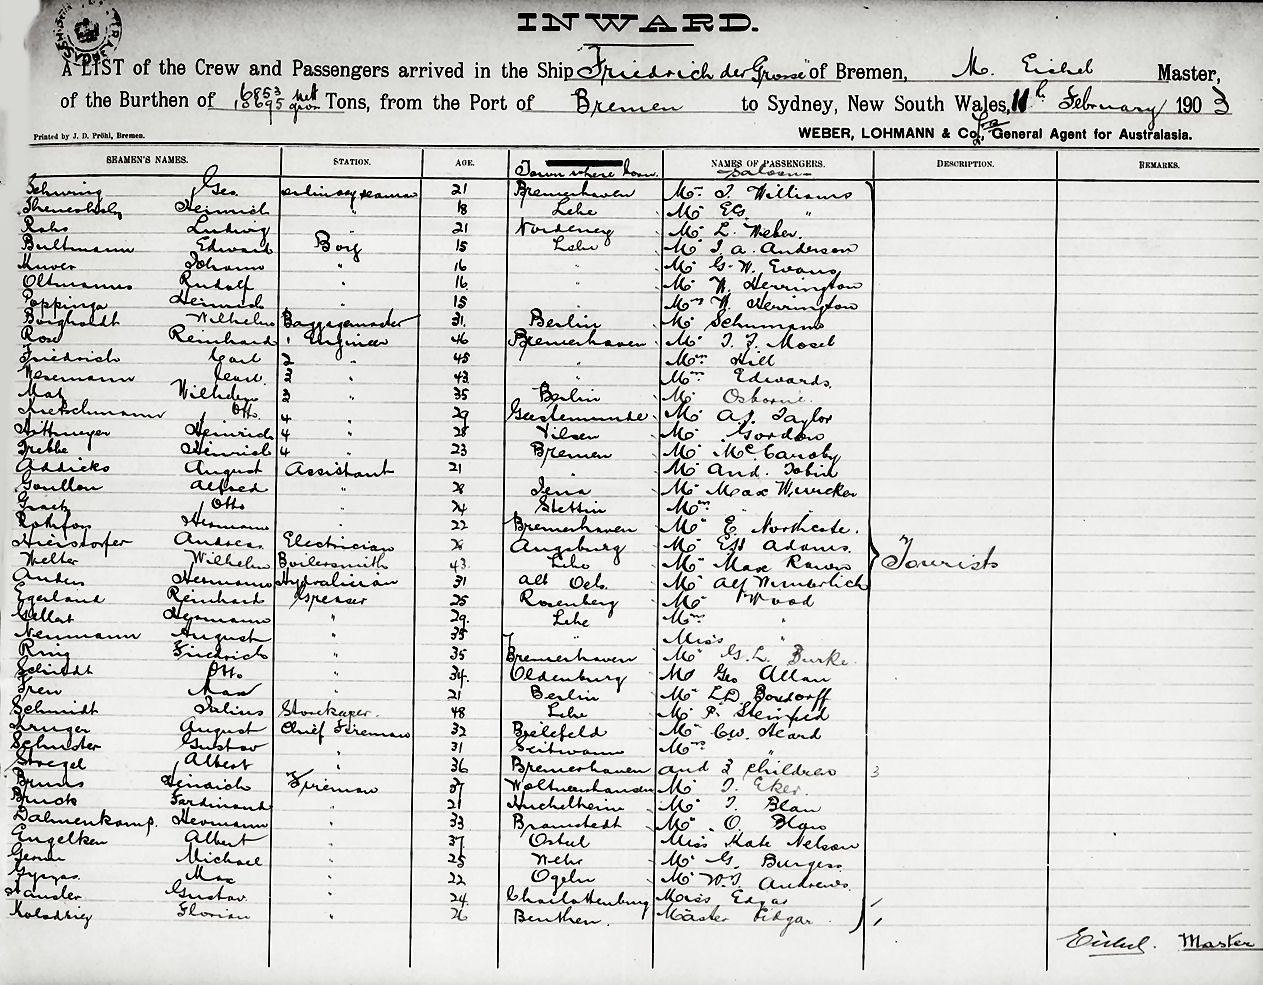 INWARD.
A LIST of the Crew and Passengers arrived in the Ship Friedrich der Grosse of Bremen, M. Eichel Master,
of the Burthen of 6853 nett 10695 gross Tons, from the Port of Bremen to Sydney, New South Wales, 11th February 1903
Printed by J. D. Pröhl, Bremen.
WEBER, LOHMANN & Co., General Agent for Australasia.
SEAMEN'S NAMES. STATION. AGE. Town where born. NAMES OF PASSENGERS. DESCRIPTION. REMARKS.
Saloon
Schwing Geo. ordinary seaman 21 Bremerhaven Mr J. Williams
Heinrich " 18 Lehe Mr EG. "
Rohs Ludwig " 21 Nordeney Mr L. Weber.
Bultmann Edward Boy 15 Lehe Mr J. A. Anderson
Johann " 16 " Mr G. W. Evans
Oltmanns Rudolf " 16 " Mr W. Herrington
Poppinga Heinrich " 15 " Mrs W. Herrington
Borghardt Wilhelm Baggagemaster 31. Berlin Mr Schumann
Rose Reinhard 1 Engineer 46 Bremerhaven Mr J. F. Mosel
Friedrich Carl 2 " 45 " Mrs Hill
Wesemann Carl. 2 " 43 " Mrs Edwards.
Wilhelm 3 " 35 Berlin Mr Osborne.
Kretschmann Otto. 4 " 29 Geestemunde Mr A. J. Taylor
Hottmeyer Heinrich 4 " 28 Vilsen Mr Gordon
Trebbe Heinrich 4 " 23 Bremen Mr
Addicks August Assistant 21 " Mr And. Tobin
Goullon Alfred " 28 Jena Mr Max Wuncker
Otto " 24 Stettin Mrs "
Hermann " 22 Bremerhaven Mr E Northcote.
Andreas Electrician Augsburg Mr Adams.
Welter Wilhelm Boilersmith 43 Lehe Mr Max
Anders Hermann 31 Alt Oels. Mr Alf Wunderlich
Egerland Reinhard 25 Rosenberg Mr Wood
Gellert Hermann " 29. Lehe Mrs "
Neumann August " 35 " Miss "
Ring Friedrich " 35 Bremerhaven Mr G. L. Burke.
Schmidt Otto " 34. Oldenburg Mr Geo Allan
Max " 21 Berlin Mr L. D. Bondorff
Schmidt Julius Storekeeper. 48 Lehe Mr P. Steinfeld
Kruger August Chief Fireman 32 Bielefeld Mr Heard
Schuster Gustav " 31 Mrs "
Stregel Albert " 36 Bremerhaven and 3 children 3
Bruns Heinrich Fireman 37 Woltmershausen Mr J. Eker.
Bruck Ferdinand " 21 Huchelheim Mr J. Blau
Dalmenkamp. Hermann " 33 Bramstedt Mr O. Blau
Engelken Albert " 37. Miss Kate Nelson
Michael " 25 Wehr Mr G. Burgess
Max " 22 Ogeln Mr W. J. Andrews.
Gustav " 24 Charlottenburg Miss Edgar
Florian " 26 Beuthen. Master Edgar
Tourists
Eichel. Master